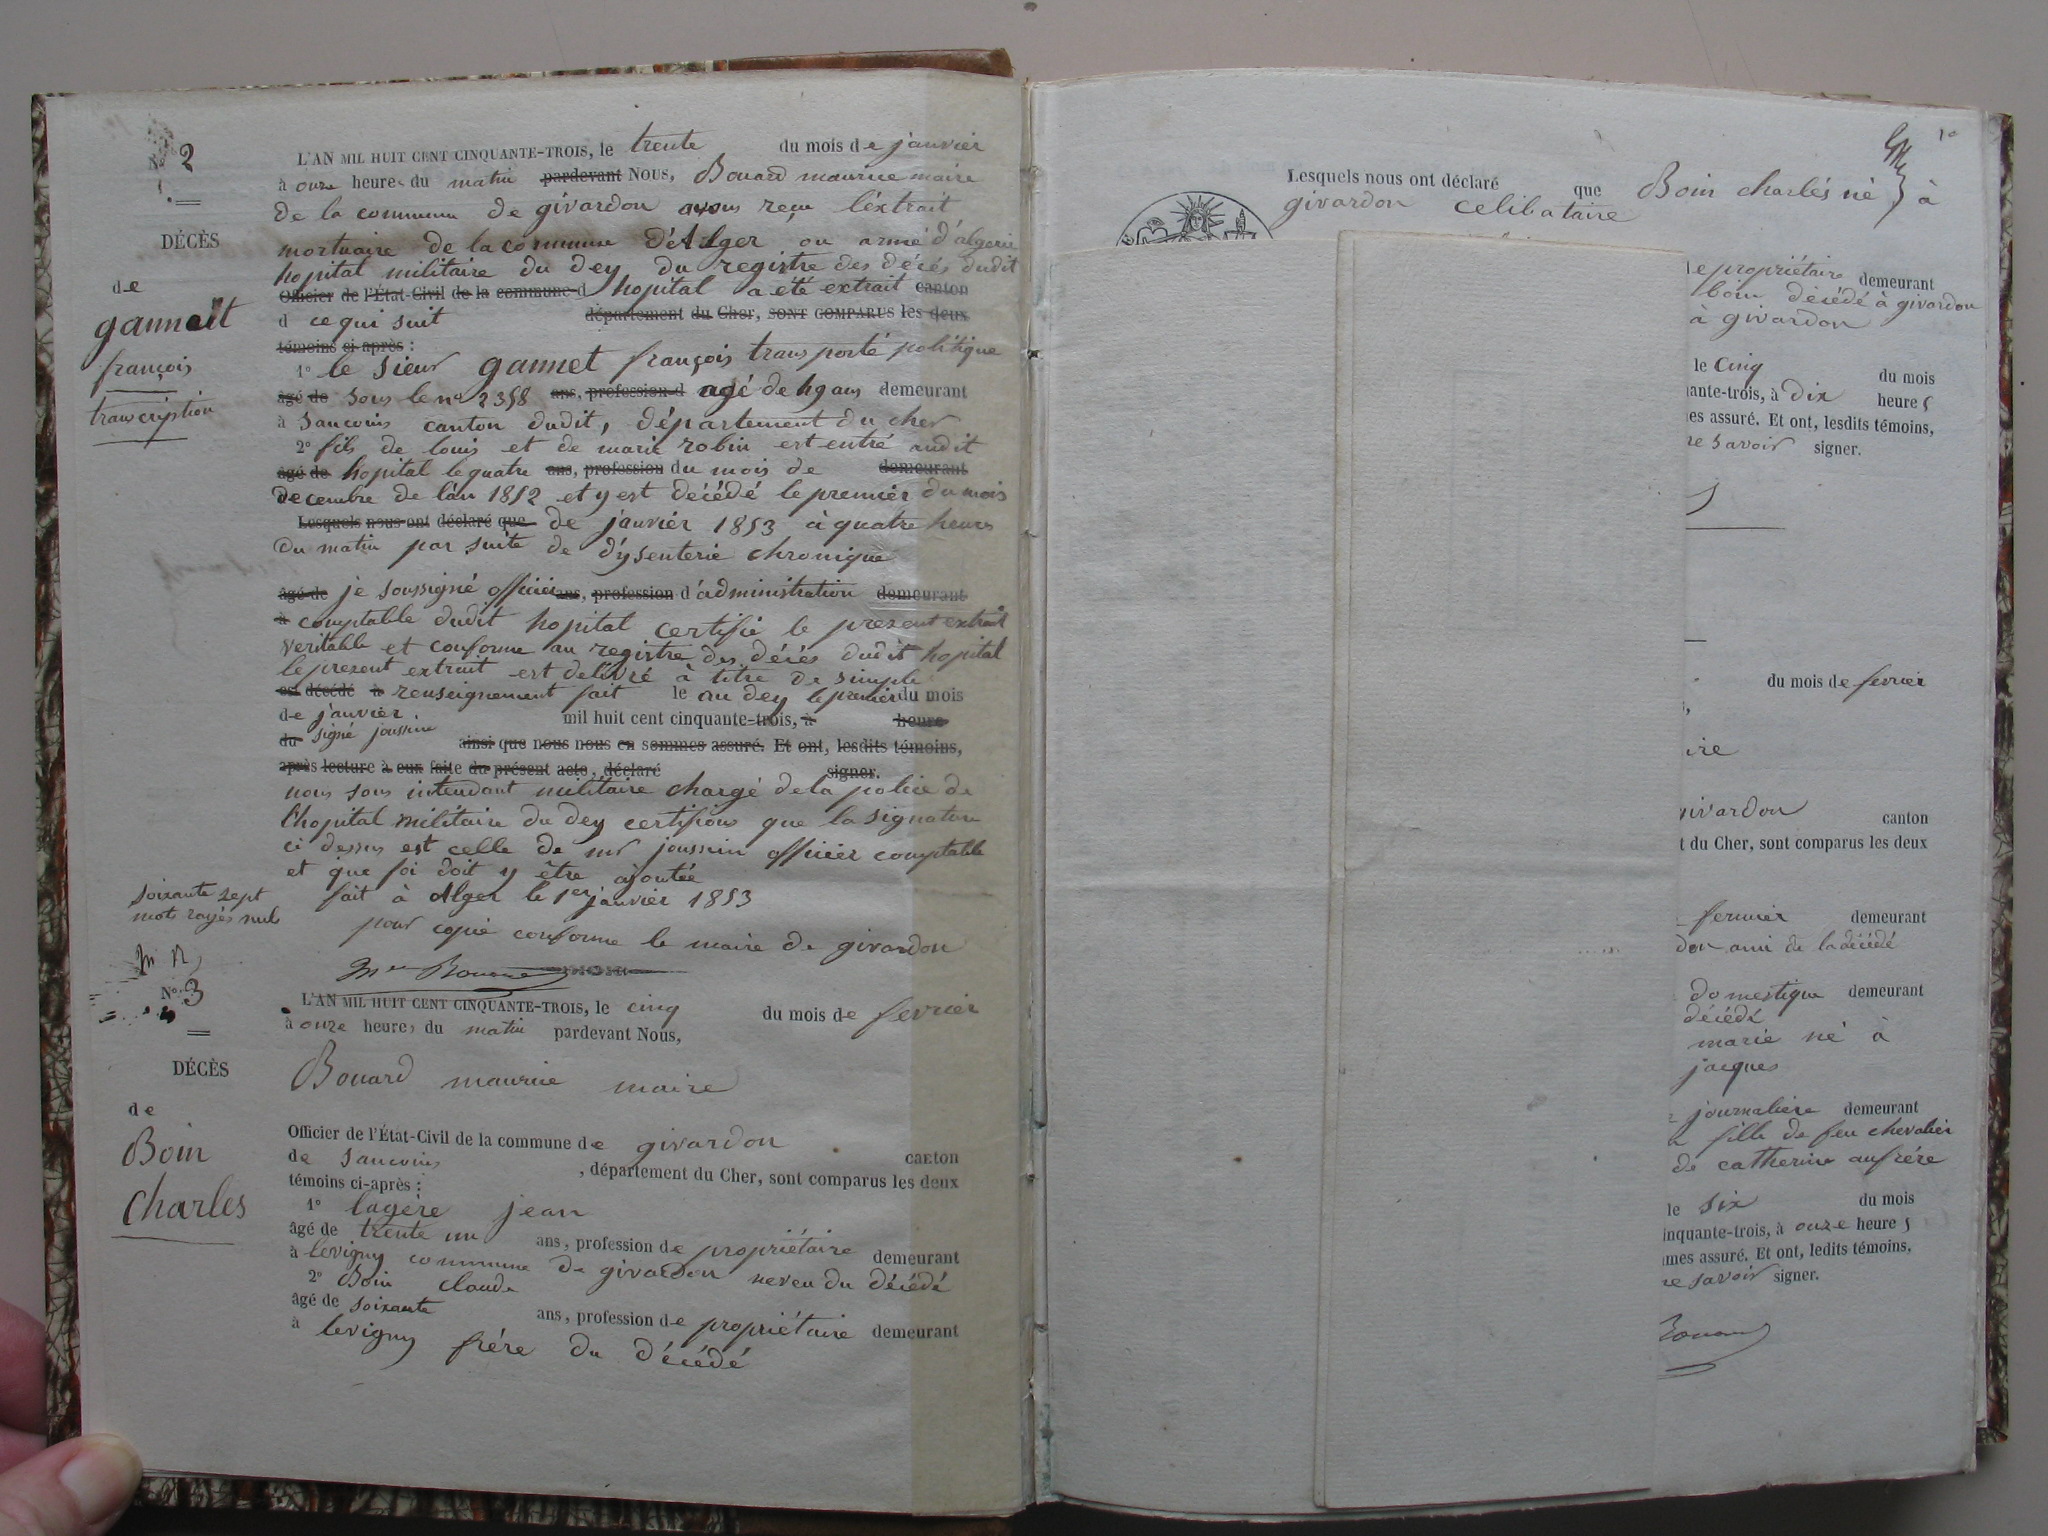 N° 2
DÉCÈS
de
gannet
françois
transcription
L'AN MIL HUIT CENT CINQUANTE-TROIS, le trente du mois de janvier
à onze heures du matin pardevant NOUS, Bouard maurice maire
de la commune de givardon avons reçu l'extrait
mortuaire de la commune d'Alger ou armé d'algerie
hopital militaire du dey du registre des décés dudit
Officier de l'État-Civil de la commune d hopital a été extrait canton
d ce qui suit département du Cher, SONT COMPARUS les deux
témoins ci-après :
1° le sieur gannet françois transporté politique
âgé de sous le n° 2358 ans, profession d agé de 49 ans demeurant
à Sancoins canton dudit, département du cher
2° fils de louis et de marie robin est entré audit
âgé de hopital le quatre ans, profession du mois de demeurant
decembre de l'an 1852 et y est décédé le premier du mois
Lesquels nous ont déclaré que de janvier 1853 à quatre heures
du matin par suite de dysenterie chronique
âgé de je soussigné officier ans, profession d'administration demeurant
à comptable dudit hopital certifie le present extrait
veritable et conforme au registre des décés dudit hopital
le present extrait est délivré à titre de simple
est décédé à renseignement fait le au dey le premier du mois
de janvier mil huit cent cinquante-trois, à heure
du signé joussin ainsi que nous nous en sommes assuré. Et ont, lesdits témoins,
après lecture à eux faite du présent acte, déclaré signer.
nous sous intendant militaire chargé de la police de
l'hopital militaire du dey certifions que la signature
ci dessus est celle de mr joussin officier comptable
et que foi doit y être ajoutée
fait à Alger le 1er janvier 1853
pour copie conforme le maire de givardon
soixante sept
mots rayés nuls
Bouard
N° 3
DÉCÈS
de
Boin
charles
L'AN MIL HUIT CENT CINQUANTE-TROIS, le cinq du mois de fevrier
à onze heures du matin pardevant Nous,
Bouard maurice maire
Officier de l'État-Civil de la commune de givardon
de Sancoins canton
, département du Cher, sont comparus les deux
témoins ci-après :
1° lagère jean
âgé de trente un ans, profession de propriétaire demeurant
à levigny commune de givardon neveu du décédé
2° Boin claude
âgé de soixante ans, profession de propriétaire demeurant
à levigny frére du décédé
Lesquels nous ont déclaré que Boin charles né à
givardon celibataire
propriétaire demeurant
boin décédé à givardon
a givardon
le cinq du mois
ante-trois, à dix heures
es assuré. Et ont, lesdits témoins,
re savoir signer.
du mois de fevrier
ire
givardon canton
t du Cher, sont comparus les deux
fermier demeurant
don ami de la décédé
domestique demeurant
décédé
marie né à
jacques
journaliere demeurant
fille de feu chevalier
de catherine aufrére
le six du mois
inquante-trois, à onze heures
mes assuré. Et ont, ledits témoins,
re savoir signer.
Bouard